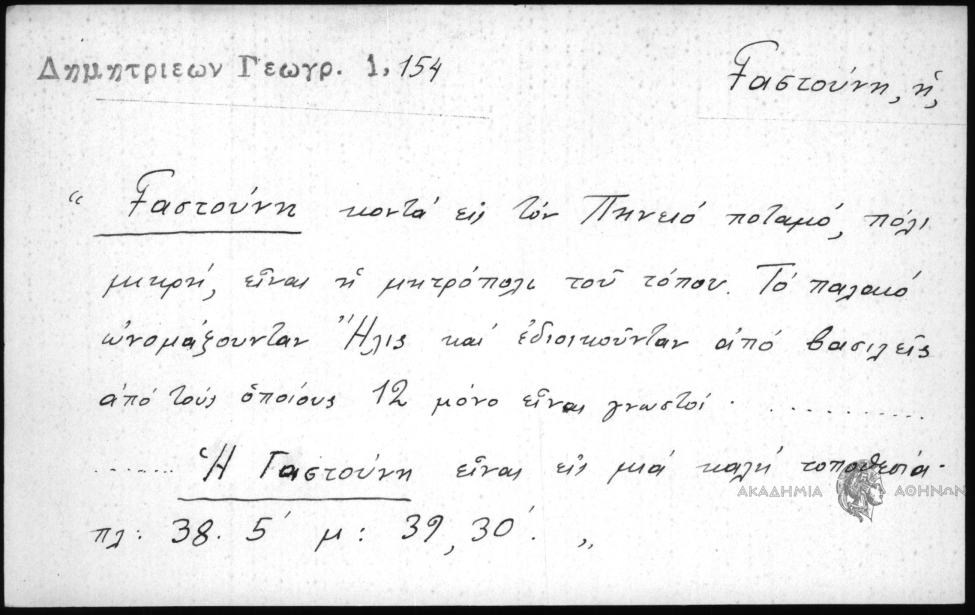 Δημητριεων Γεωγρ. 1, 154
Γαστούνη, ἡ,
“ Γαστούνη κοντά εἰς τόν Πηνειό ποταμό, πόλι
μικρή, εἶναι ἡ μητρόπολι τοῦ τόπου. Τό παλαιό
ὠνομάζουνταν Ἦλις καί ἐδιοικοῦνταν ἀπό βασιλεῖς
ἀπό τούς ὁποίους 12 μόνο εἶναι γνωστοί · ............
....... Ἡ Γαστούνη εἶναι εἰς μιά καλή τοποθεσία·
ΑΚΑΔΗΜΙΑ ΑΘΗΝΩΝ
πλ: 38. 5΄ μ: 39, 30΄. „